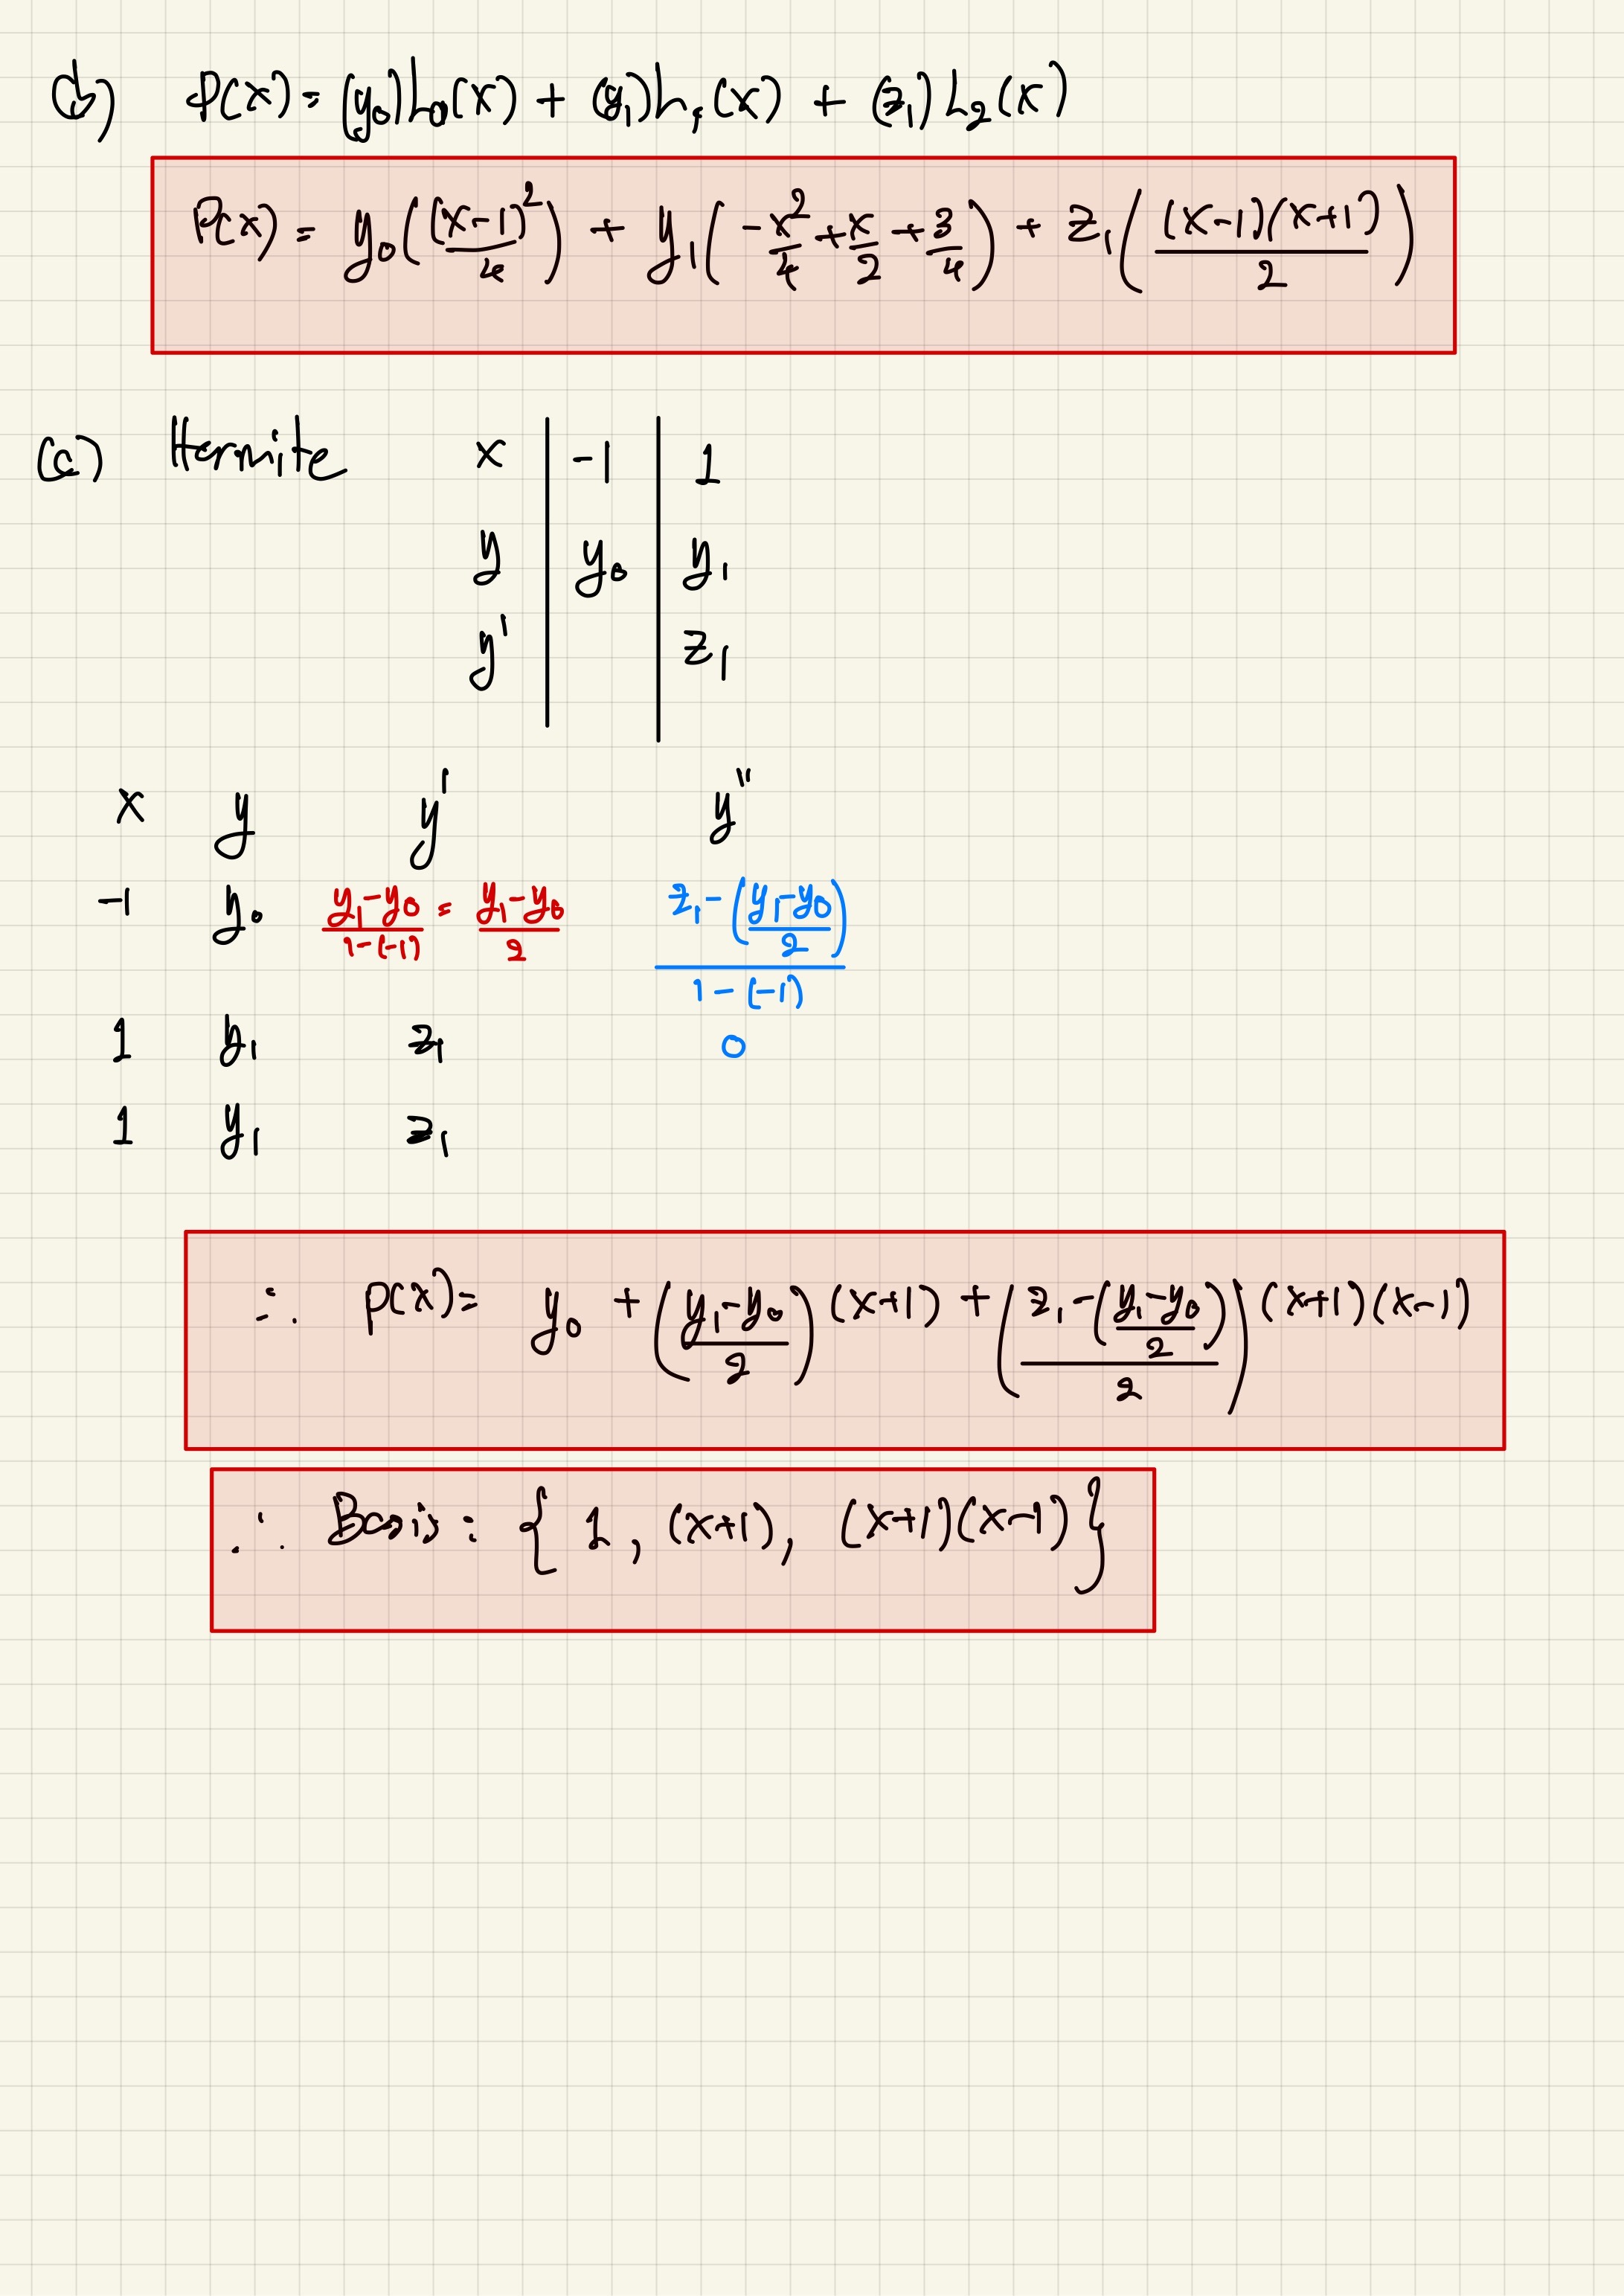 b) P(x) = (y₀)L₀(x) + (y₁)L₁(x) + (z₁)L₂(x)
P(x) = y₀((x-1)²/4) + y₁(-x²/4 + x/2 + 3/4) + z₁((x-1)(x+1)/2)
(c) Hermite x | -1 | 1
y | y₀ | y₁
y' | | z₁
x y y' y''
-1 y₀ (y₁-y₀)/(1-(-1)) = (y₁-y₀)/2 (z₁-((y₁-y₀)/2))/(1-(-1))
1 y₁ z₁ 0
1 y₁ z₁
∴ P(x) = y₀ + ((y₁-y₀)/2)(x+1) + ((z₁-((y₁-y₀)/2))/2)(x+1)(x-1)
∴ Basis: {1, (x+1), (x+1)(x-1)}